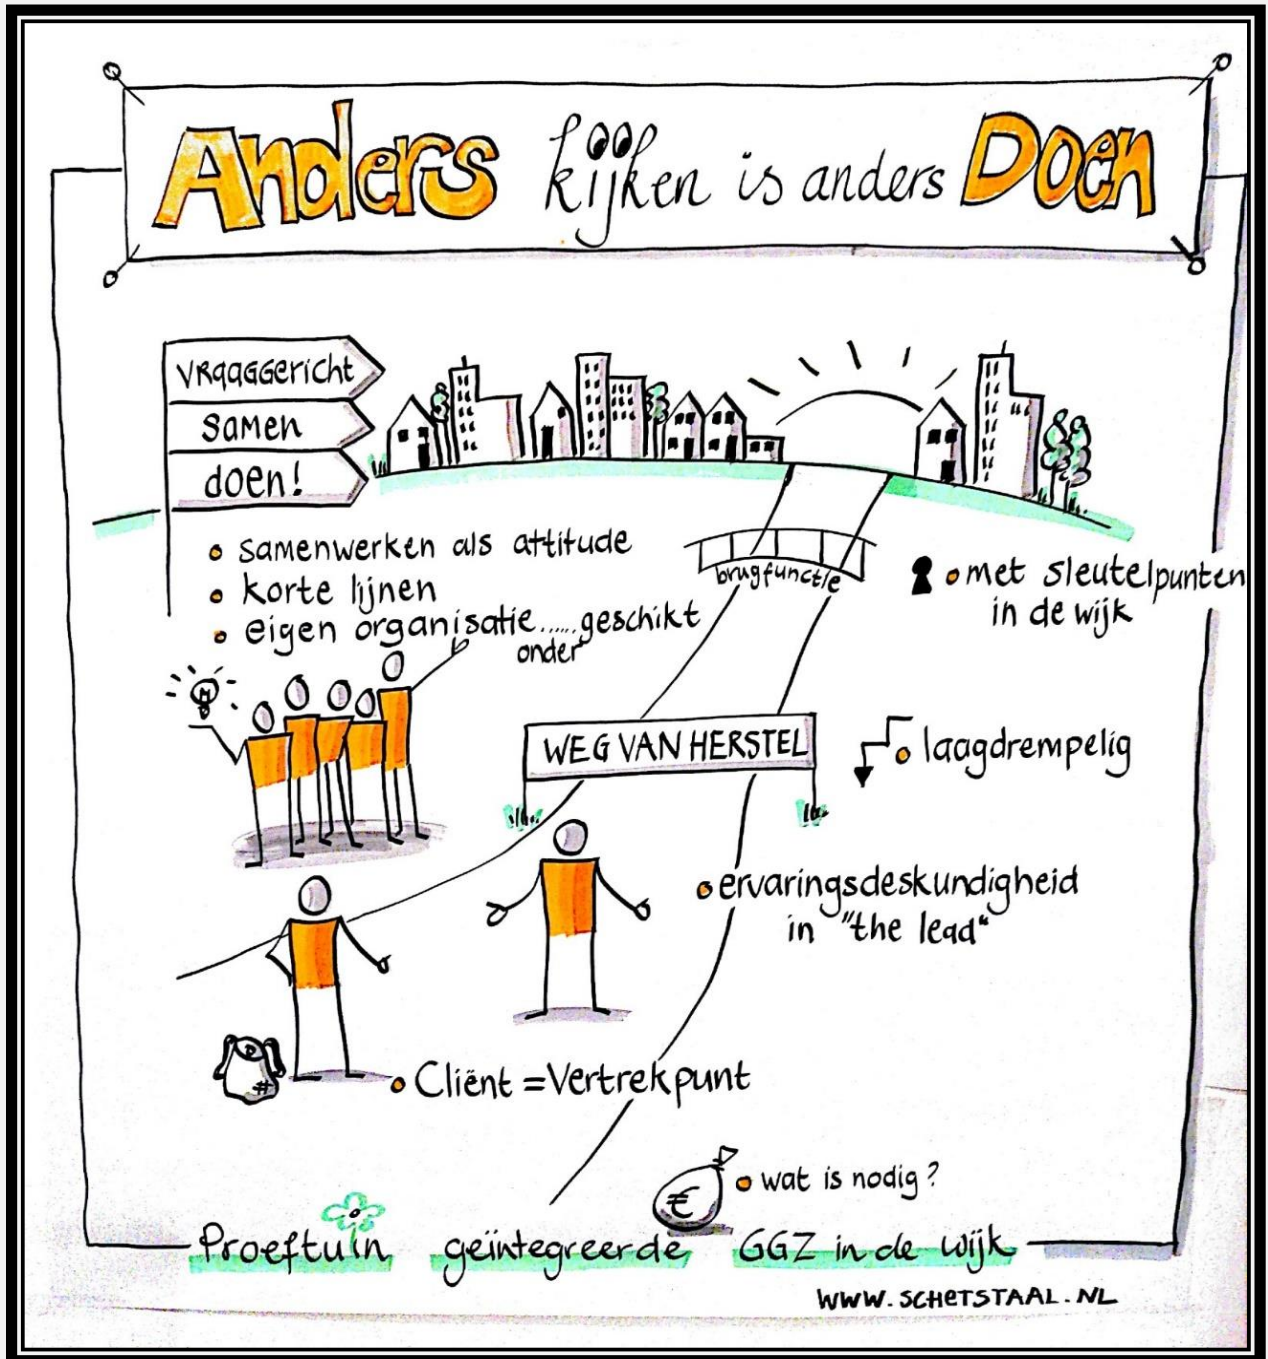 Anders kijken is anders Doen
vraaggericht
samen
doen!
• samenwerken als attitude
• korte lijnen
• eigen organisatie......geschikt
onder
brugfunctie
• met sleutelpunten
in de wijk
WEG VAN HERSTEL
• laagdrempelig
• ervaringsdeskundigheid
in "the lead"
• Cliënt = Vertrekpunt
€
• wat is nodig?
Proeftuin geïntegreerde GGZ in de wijk
WWW.SCHETSTAAL.NL